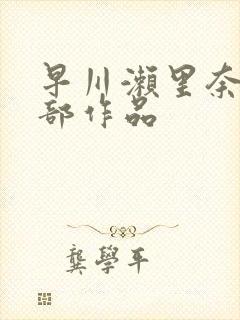 早川瀨里奈
部作品
龔學平